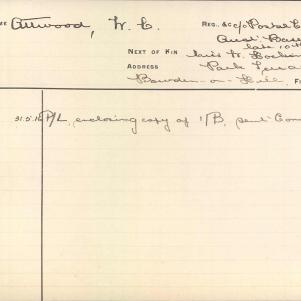 ME Attwood, W. C. REG., &c c/o Postal C
Aust Bas
late 10th
NEXT OF KIN Miss W.
ADDRESS Park Terra
Bowden-on-Hill F
31.5.18 P/L enclosing copy of I/B. sent Com